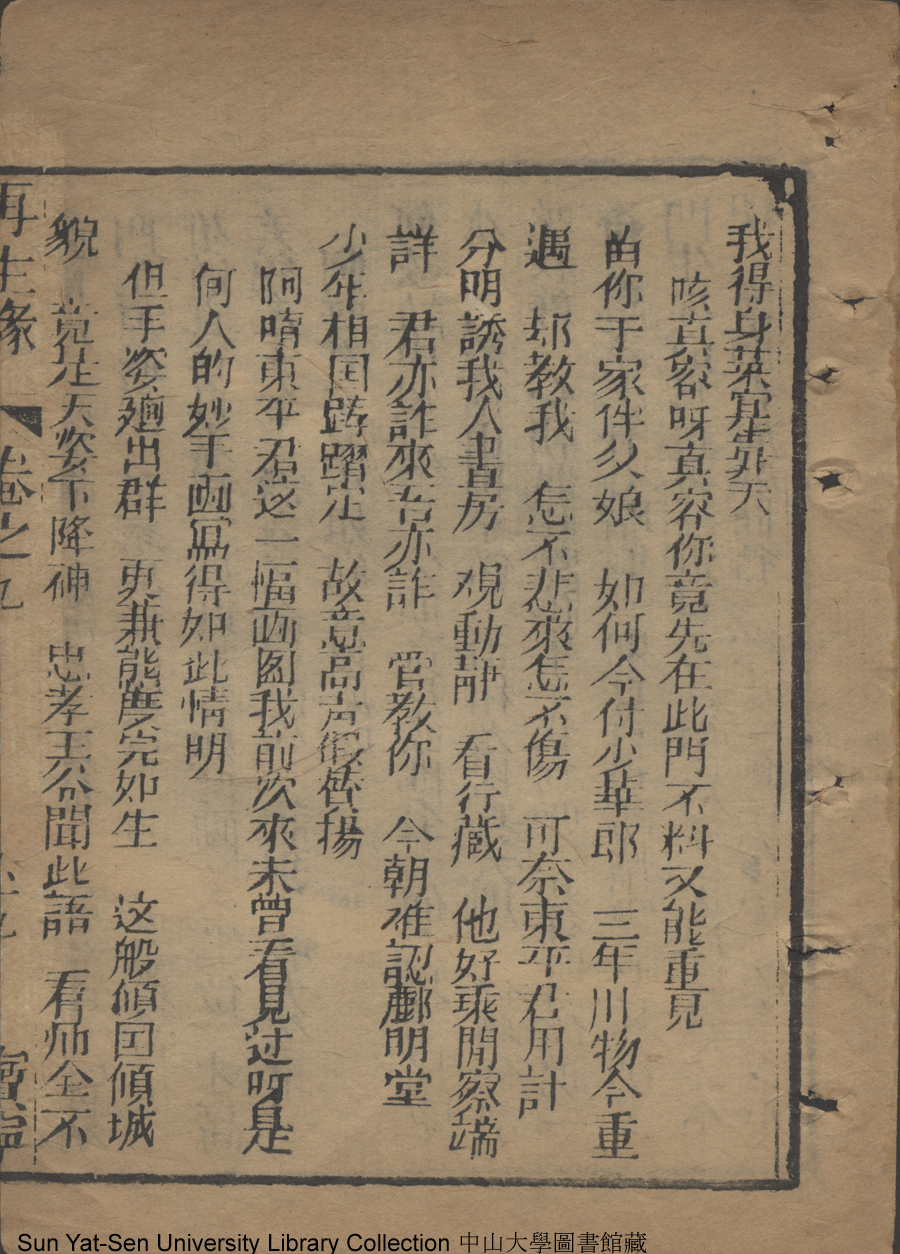 我得身荣宠靠天
咳真容呀真容你竟先在此門不料又能重見
由你于家伴久娘　如何今付少華郎　三年川物今重
遇　却教我　怎不悲來怎不傷　可奈東平君用計
分明誘我入書房　观動静　看行藏　他好乘閒察端
詳　君亦詐來吾亦詐　管教你　今朝难認酈明堂
少年相国踌躇定　故意高声假赞揚
阿唷東平君这一幅画图我前次來未曾看見过呀是
何人的妙手画寫得如此情明
但手姿廻出群　更兼能度完如生　这般傾国傾城
貌　竟是天姿下降神　忠孝王爷聞此語　看师全不
再生缘　卷之九
Sun Yat-Sen University Library Collection 中山大學圖書館藏